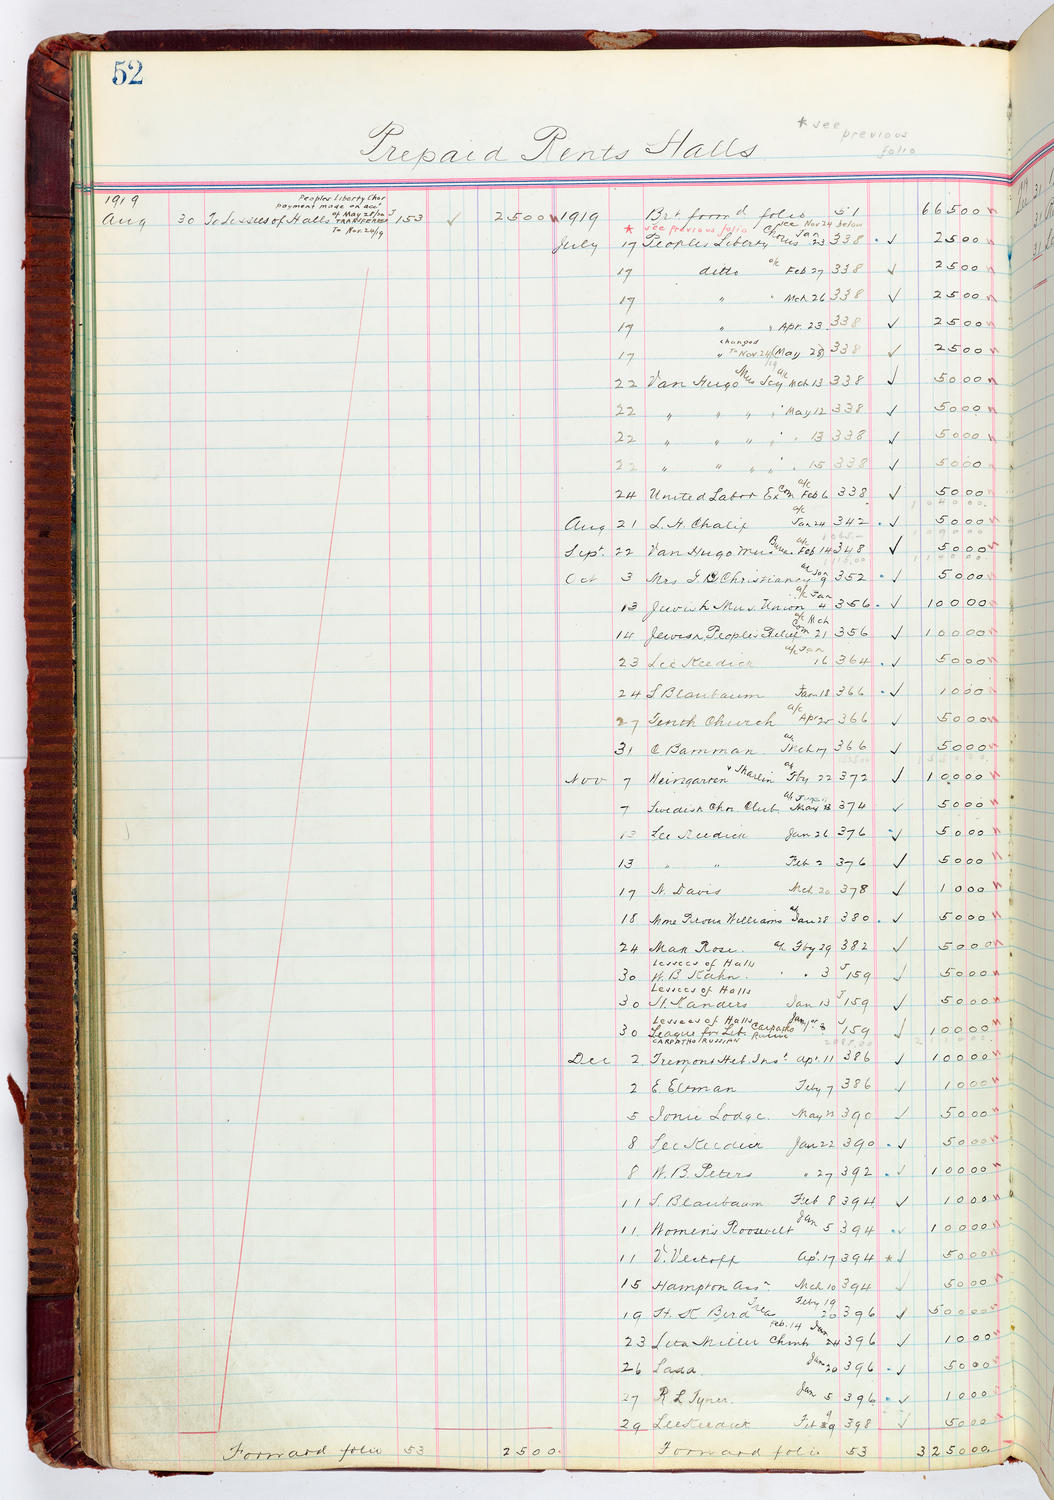 52
* see previous folio
Prepaid Rents Halls
1919
Peoples Liberty Chor
payment made on acc't
of May 28/20
TRANSFERRED
To Nov. 24/19
Aug 30 To Lessees of Halls J 153 ✓ 2500
1919 Brt forw'd folio 51 66500
* see previous folio see Nov 24 below
July 17 Peoples Liberty Chorus Jan 23 338 ✓ 2500
17 ditto a/c Feb 27 338 ✓ 2500
17 " " Mch 26 338 ✓ 2500
17 " " Apr. 23 338 ✓ 2500
changed
17 " To Nov 24/19 (May 28) 338 ✓ 2500
22 Van Hugo Mus Socy a/c Mch 13 338 ✓ 5000
22 " " " " May 12 338 ✓ 5000
22 " " " " " 13 338 ✓ 5000
22 " " " " " 15 338 ✓ 5000
24 United Labor Ex Com a/c Feb 6 338 ✓ 5000
Aug 21 L. H. Chalif a/c Jan 24 342 ✓ 5000
Sept. 22 Van Hugo Mus a/c Feb 14 348 ✓ 5000
Oct 3 Mrs Christiancy a/c Jan 9 352 ✓ 5000
13 Jewish Mus. Union a/c Jan 4 356 ✓ 10000
14 Jewish Peoples Relief Com a/c Mch 21 356 ✓ 10000
23 Lee Keedick a/c Jan 16 364 ✓ 5000
24 S Blaubaum Jan 18 366 ✓ 1000
27 Tenth Church a/c Apr 25 366 ✓ 5000
31 C Bamman a/c Mch 17 366 ✓ 5000
Nov 7 Weingarten & Sharlin a/c Fby 22 372 ✓ 10000
7 Swedish Chr. Club a/c 374 ✓ 5000
13 Lee Keedick Jan 26 376 ✓ 5000
13 " " Feb 2 376 ✓ 5000
17 N. Davis Mch 20 378 ✓ 1000
18 Mme Williams a/c Jan 28 380 ✓ 5000
24 Max Rose a/c Fby 29 382 ✓ 5000
Lessees of Halls
30 W. B. Kahn " " 3 J 159 ✓ 5000
Lessees of Halls
30 H. Sanders Jan 13 J 159 ✓ 5000
Lessees of Halls
30 League for Lib. Carpatho Russia J 159 ✓ 10000
CARPATHO RUSSIAN
Dec 2 Tremont Heb. Ins't Apr. 11 386 ✓ 10000
2 E. Elkman Feby 7 386 ✓ 1000
5 Ionic Lodge May 21 390 ✓ 5000
8 Lee Keedick Jan 22 390 ✓ 5000
8 W. B. Peters " 27 392 ✓ 10000
11 S. Blaubaum Feb 8 394 ✓ 1000
11 Women's Roosevelt Jan 5 394 ✓ 10000
11 V. Ap'. 17 394 * ✓ 5000
15 Hampton Ass'n Mch 10 394 ✓ 5000
Feby 19
19 H. K. Bird Trea 20 396 ✓ 50000
Feb. 14
23 Lita Miller Jan 24 396 ✓ 1000
26 Lada Jan 20 396 ✓ 5000
27 R L Tyner. Jan 5 396 ✓ 1000
29 Lee Keedick Feb 9 398 ✓ 5000
Forward folio 53 2500
Forward folio 53 325000